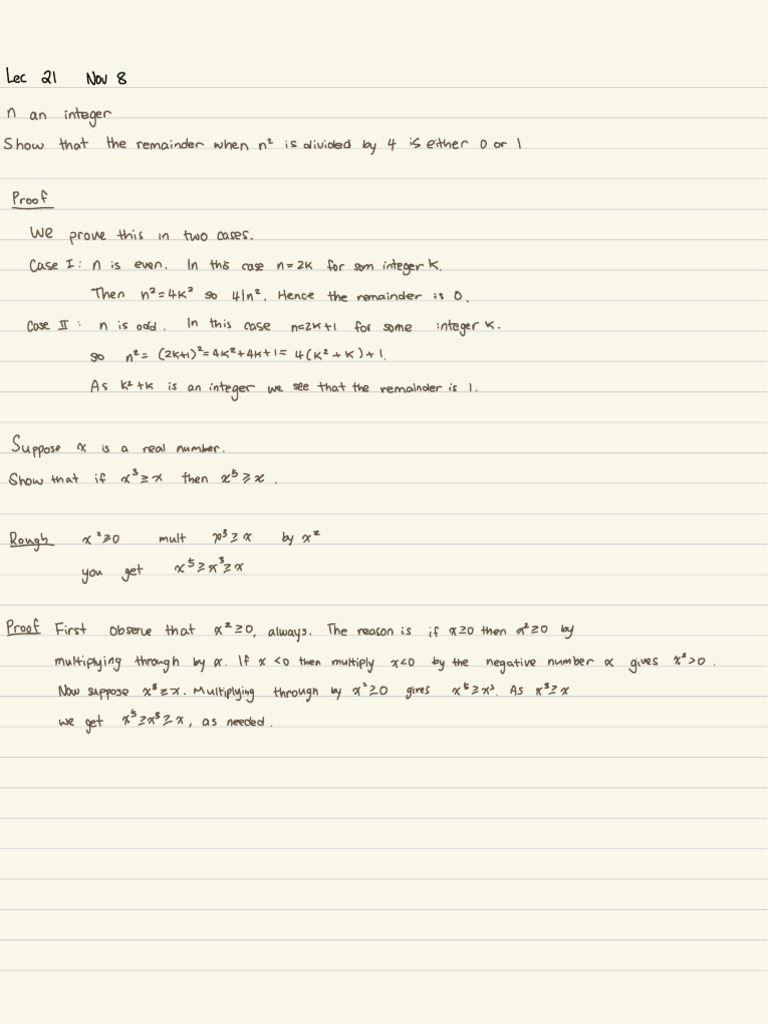 Lec 21 Nov 8
n an integer
Show that the remainder when n² is divided by 4 is either 0 or 1
Proof
We prove this in two cases.
Case I: n is even. In this case n=2k for som integer k.
Then n²=4k² so 4|n². Hence the remainder is 0.
Case II: n is odd. In this case n=2k+1 for some integer k.
so n²= (2k+1)²=4k²+4k+1= 4(k²+k)+1.
As k²+k is an integer we see that the remainder is 1.
Suppose x is a real number.
Show that if x³≥x then x⁵≥x.
Rough x²≥0 mult x³≥x by x²
you get x⁵≥x³≥x
Proof First observe that x²≥0, always. The reason is if x≥0 then x²≥0 by
multiplying through by x. If x<0 then multiply x<0 by the negative number x gives x²>0.
Now suppose x³≥x. Multiplying through by x²≥0 gives x⁵≥x³. As x³≥x
we get x⁵≥x³≥x, as needed.